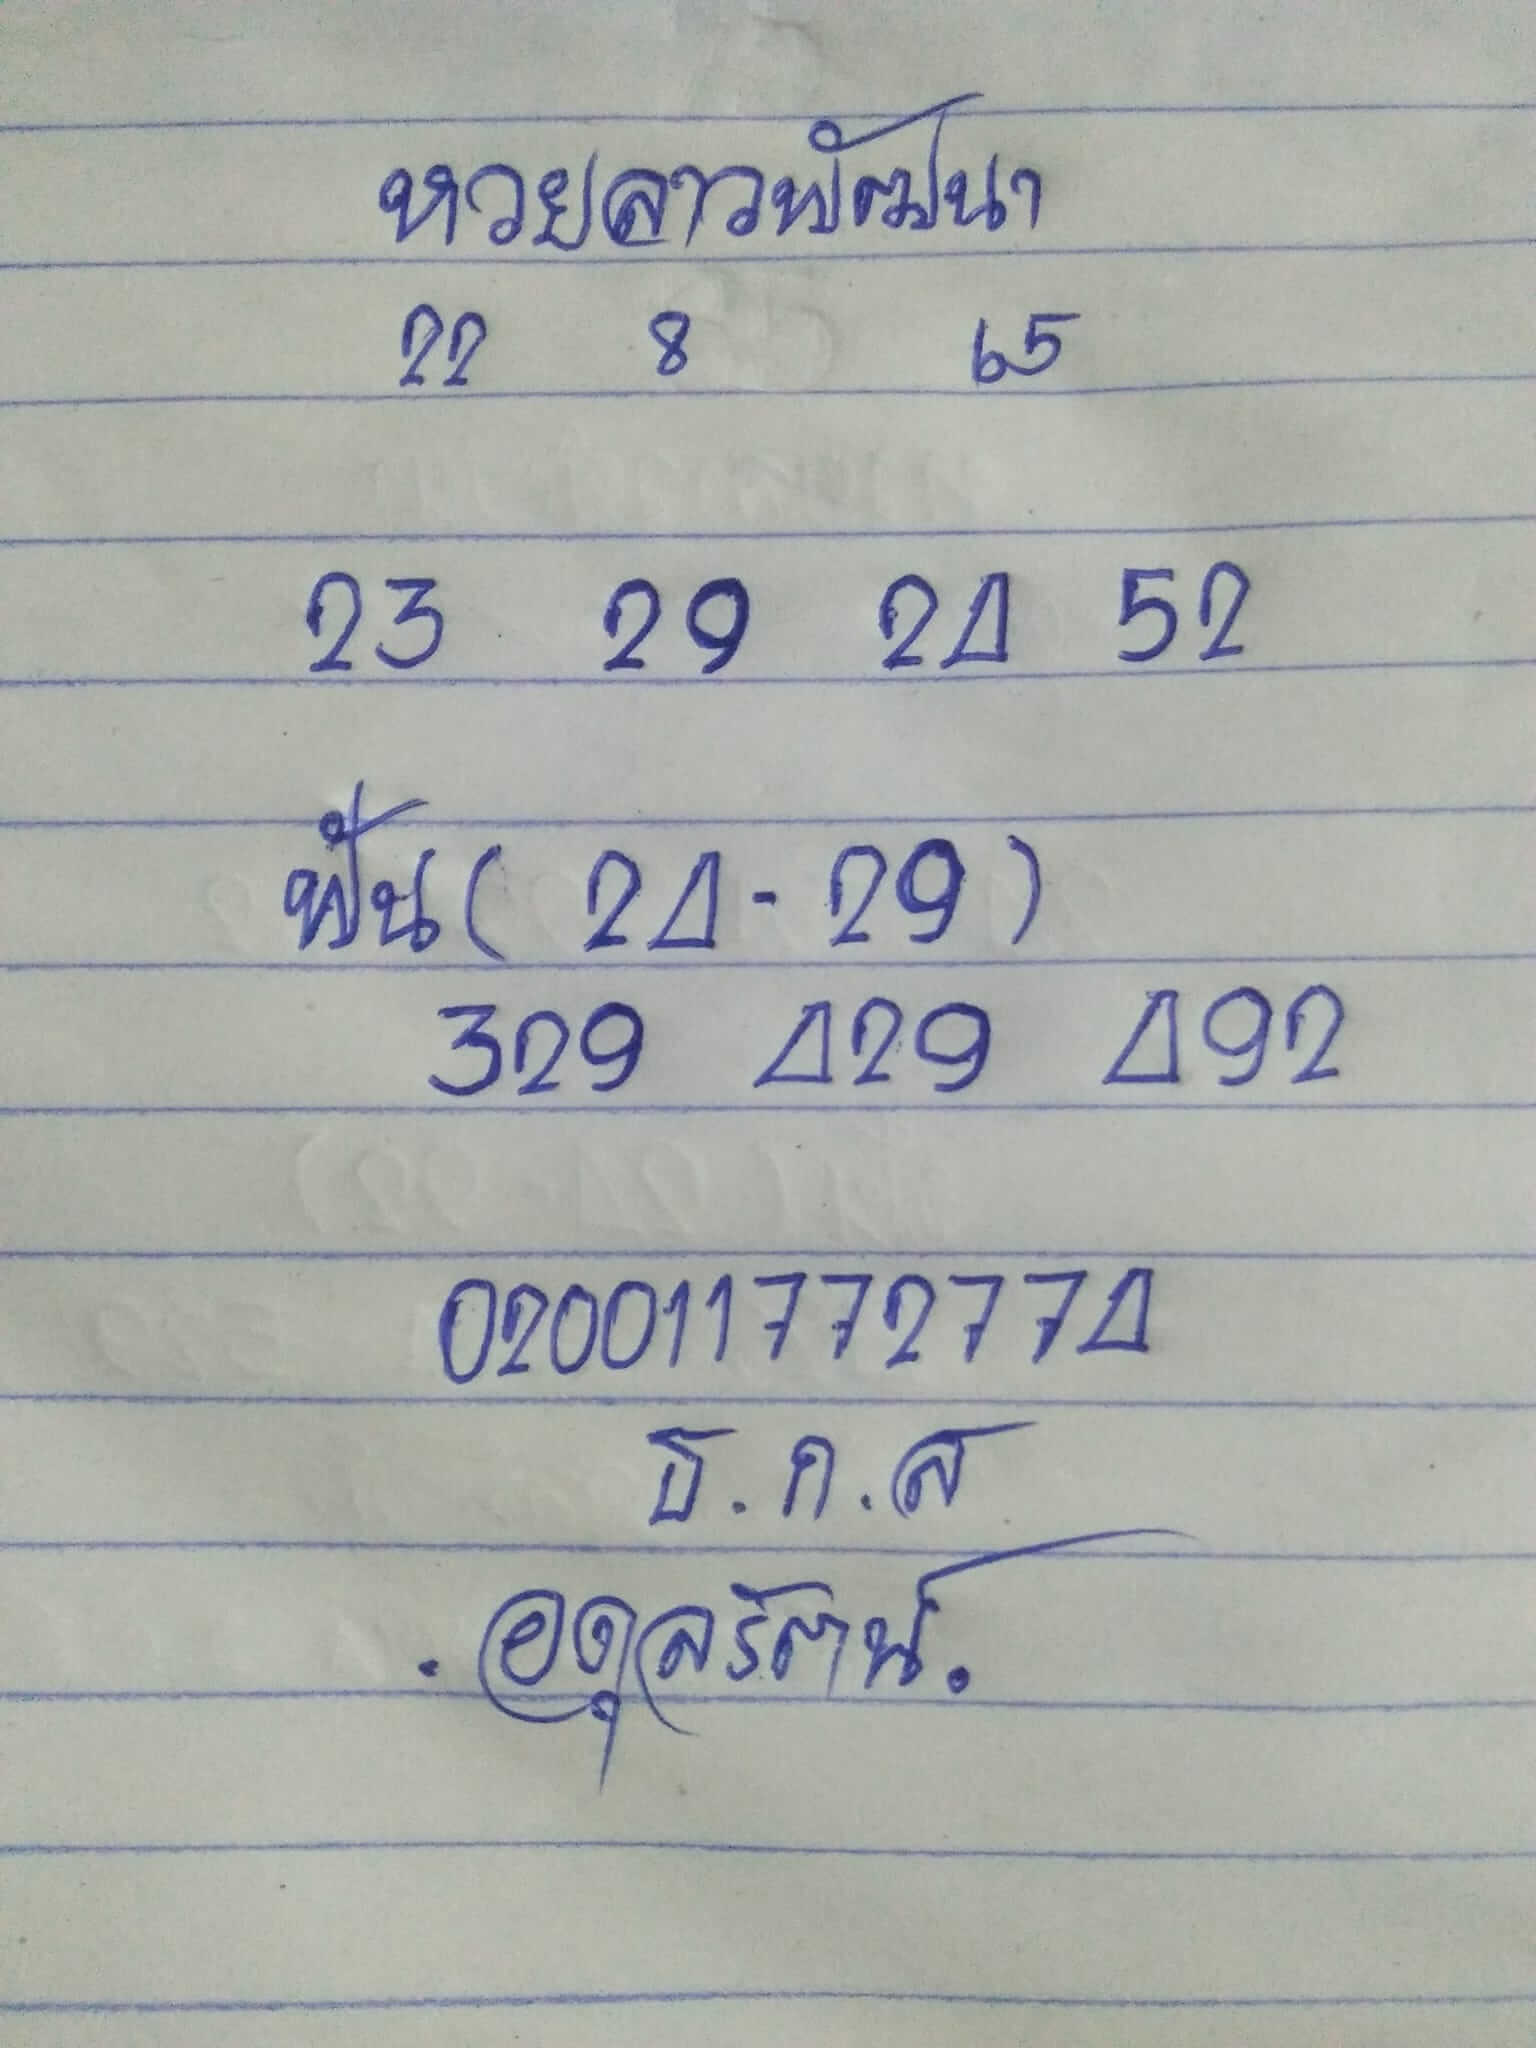 หวยลาวพัฒนา
22 8 65
23 29 24 52
ฟัน ( 24 - 29 )
329 429 492
020011772774
ธ.ก.ส
. อดุลรัตน์ .